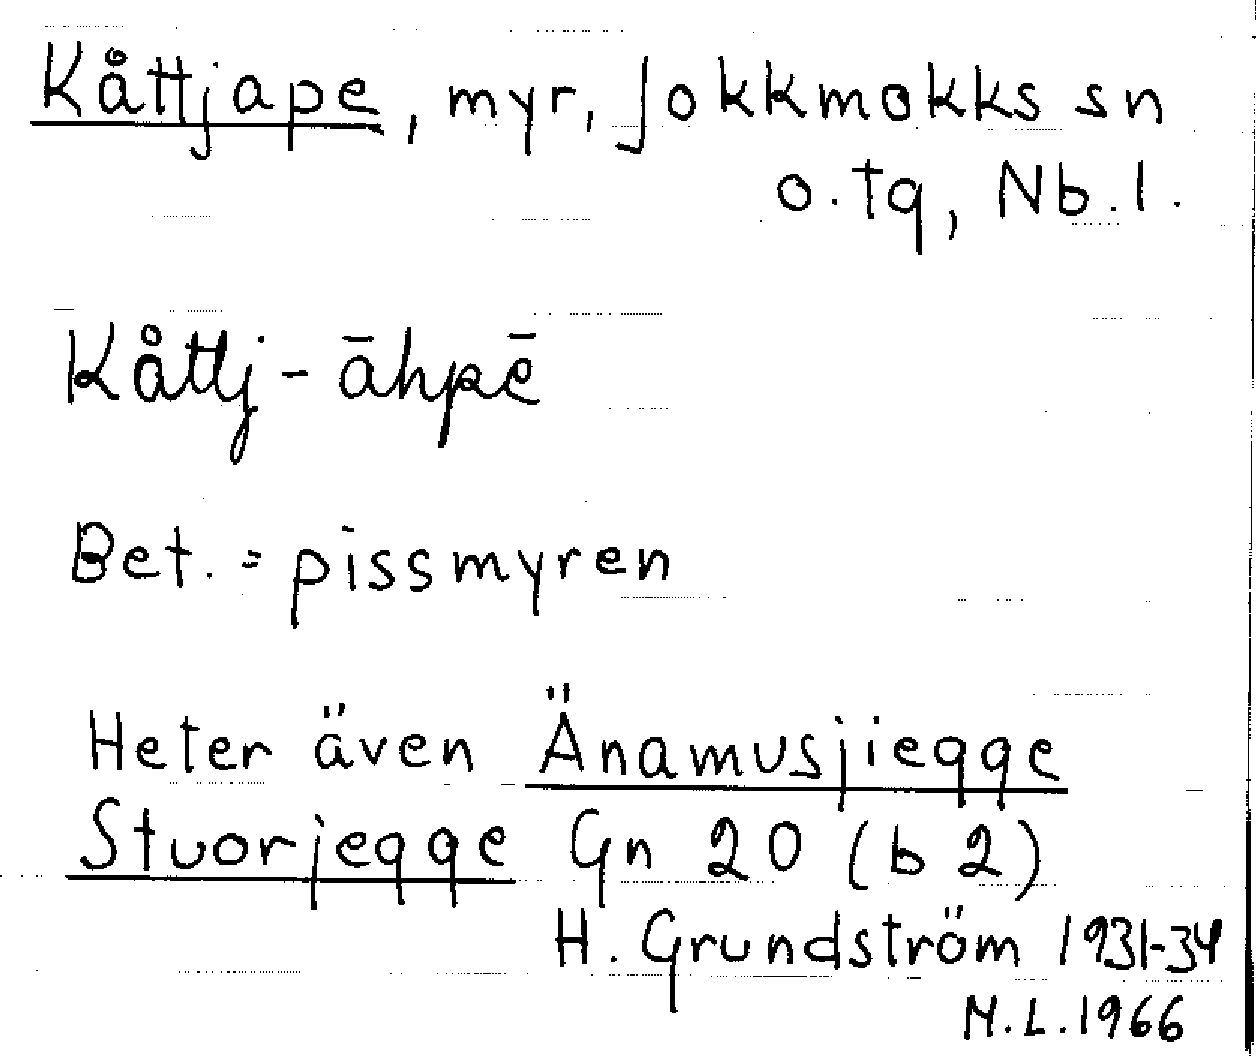 Kåttjape, myr, Jokkmokks sn
o. tg, Nb. l.
Kåttj-āhpē
Bet. = pissmyren
Heter även Änamusjiegge
Stuorjegge Gn 20 (b 2)
H. Grundström 1931-34
M.L. 1966